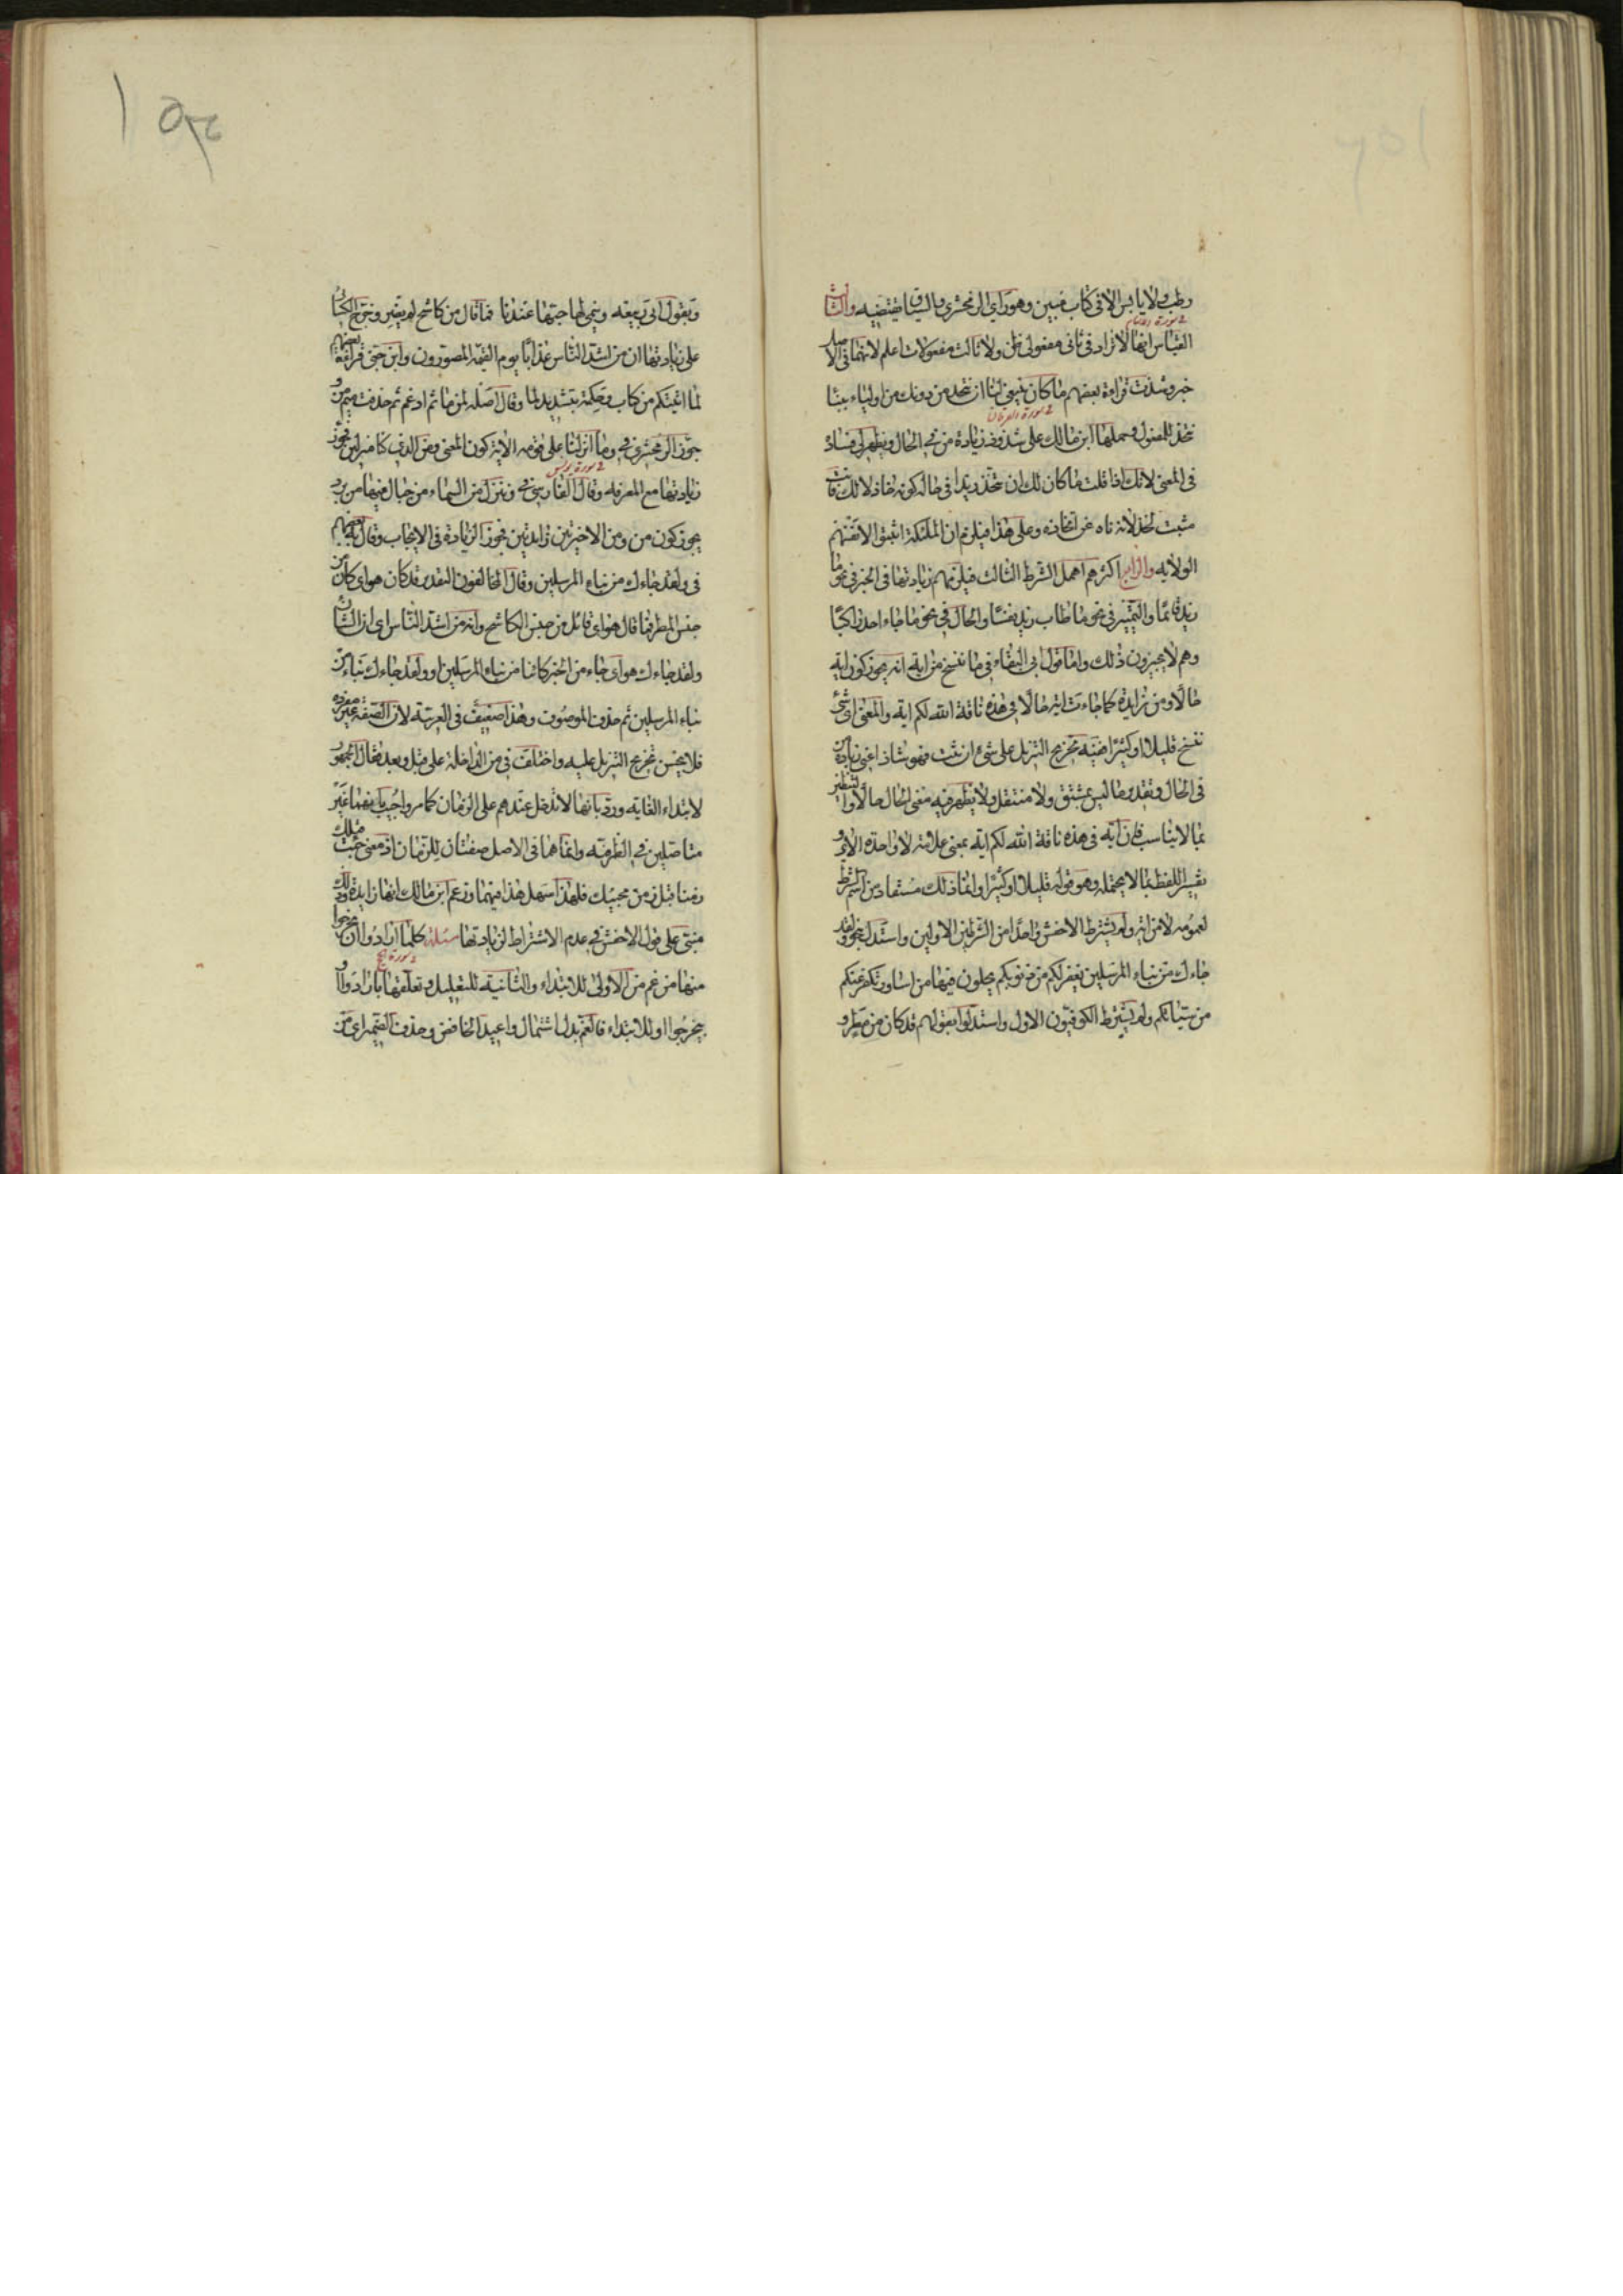 رطب ولا يابس الا فى كتاب مبين وهو رأي الزمخشرى والسياق يقتضيه والثالث
القياس انها لا تزاد فى ثانى مفعولى ظن ولا ثالث مفعولات اعلم لانهما فى الاصل
خبر وشذت قراءة بعضهم ما كان ينبغى لنا ان نتخذ من دونك من اولياء ببناء
نتخذ للمفعول وحملها ابن مالك على شذوذ زيادة من فى الحال ويظهر لى فساده
فى المعنى لانك اذا قلت ما كان لك ان تتخذ زيدا فى حالة كونه خاذلا لك فانت
مثبت لخذلانه ناه عن اتخاذه وعلى هذا فيلزم ان الملئكة اثبتوا لانفسهم
الولاية والرابع اكثرهم اهمل الشرط الثالث فيلزمهم زيادتها فى الخبر فى نحو ما
زيد قائمًا والتمييز فى نحو ما طاب زيد نفسًا والحال فى نحو ما جاء احد راكبًا
وهم لا يجيزون ذلك واما قول ابى البقاء فى ما ننسخ من اية انه يجوز كون اية
حالًا ومن زايدة كما جاءت اية حالًا فى هذه ناقة الله لكم اية والمعنى اى شئ
ننسخ قليلا او كثيرًا ففيه تخريج التنزيل على شئ ان ثبت فهو شاذ اعنى زيادة من
فى الحال وتقدير ما ليس بمشتق ولا منتقل ولا يظهر فيه معنى الحال حالًا والتنظير
بما لا يناسب فان آية فى هذه ناقة الله لكم اية بمعنى علامة لا واحدة الاى و
تفسير اللفظ بما لا يحتمله وهو قوله قليلا او كثيرًا وانما ذلك مستفاد من اسم الشرط
لعمومه لا من اية ولم يشترط الاخفش واحدًا من الشرطين الاولين واستدل بنحو ولقد
جاءك من نباء المرسلين يغفر لكم من ذنوبكم يحلون فيها من اساور نكفر عنكم
من سيئاتكم ولم يشترط الكوفيون الاول واستدلوا بقولهم قد كان من مطر و
2 سورة الانعام
2 سورة الفرقان
وبقول ابى ربيعة وينمى لها حبها عندنا فما قال من كاشح لم يضر وخرج الكسائى
على زيادتها ان من اشد الناس عذابًا يوم القيمة المصورون وابن جنى قراءة بعضهم
لما اتيتكم من كتاب وحكمة بتشديد لما وقال اصله لمن ما ثم ادغم ثم حذفت ميم من و
جوز الزمخشرى فى وما انزلنا على قومه الاية كون المعنى ومن الذى كنا منزلين فجوز
زيادتها مع المعرفة وقال الفارسى فى وننزل من السماء من جبال فيها من برد
يجوز كون من ومن الاخيرتين زايدتين فجوز الزيادة فى الايجاب وقال به بعضهم
فى ولقد جاءك من نباء المرسلين وقال المخالفون التقدير قد كان هو اى كائن من
جنس المطر فما قال هو اى قائل من جنس الكاشح وانه من اشد الناس اى ان الشان
ولقد جاءك هو اى جاء من الخبر كائنا من نباء المرسلين او ولقد جاءك نباء من
نباء المرسلين ثم حذف الموصوف وهذا ضعيف فى العربية لان الصفة غير مفرده
فلا يحسن تخريج التنزيل عليه واختلف فى من الداخلة على قبل وبعد فقال الجمهور
لابتداء الغاية ورد بانها لا تدخل عندهم على الزمان كما مر واجيب بانهما غير
متاصلين فى الظرفية وانما هما فى الاصل صفتان للزمان اذ معنى جئت قبلك
زمنا قبل زمن مجيئك فلهذا سهل هذا فيهما وزعم ابن مالك انها زايدة وذلك
مبنى على قول الاخفش فى عدم الاشتراط لزيادتها مسئلة كلما ارادوا ان يخرجوا
منها من غم من الاولى للابتداء والثانية للتعليل وتعلقها بارادوا او
بيخرجوا او للابتداء فالغم بدل اشتمال واعيد الخافض وحذف الضمير اى من
2 سورة يونس
2 سورة حج